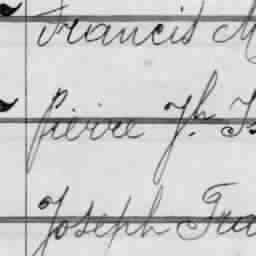 Francis M
Pierre Jh.
Joseph Fra